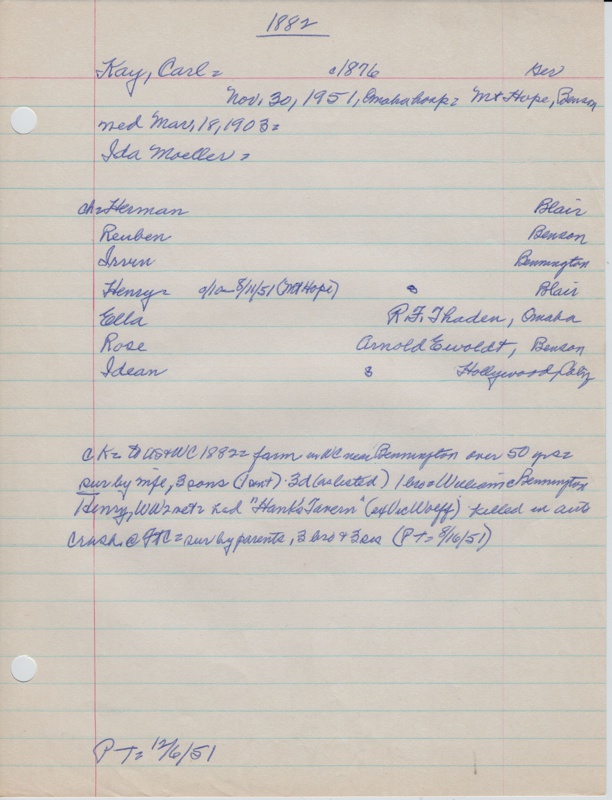 1882
Kay, Carl = c1876 Ger
Nov. 30, 1951, Omaha hosp = Mt Hope, Benson
med Mar. 18, 1903 =
Ida Moeller =
ch = Herman Blair
Reuben Benson
Irvin Bennington
Henry = c/10 - 8/11/51 (Mt Hope) s Blair
Ella R.F. Thaden, Omaha
Rose Arnold Ewoldt, Benson
Idean s Hollywood,
CK = to US & WC 1882 = farm in WC near Bennington over 50 yrs =
sur by wife, 3 sons 3d (as listed) 1 bro = William Bennington
Henry, WW2 vet = had "Hank's Tavern" (ex Vic Wolff) killed in auto
crash @ Ft C = sur by parents, 3 bro & 3 sis (PT = 8/16/51)
PT = 12/6/51